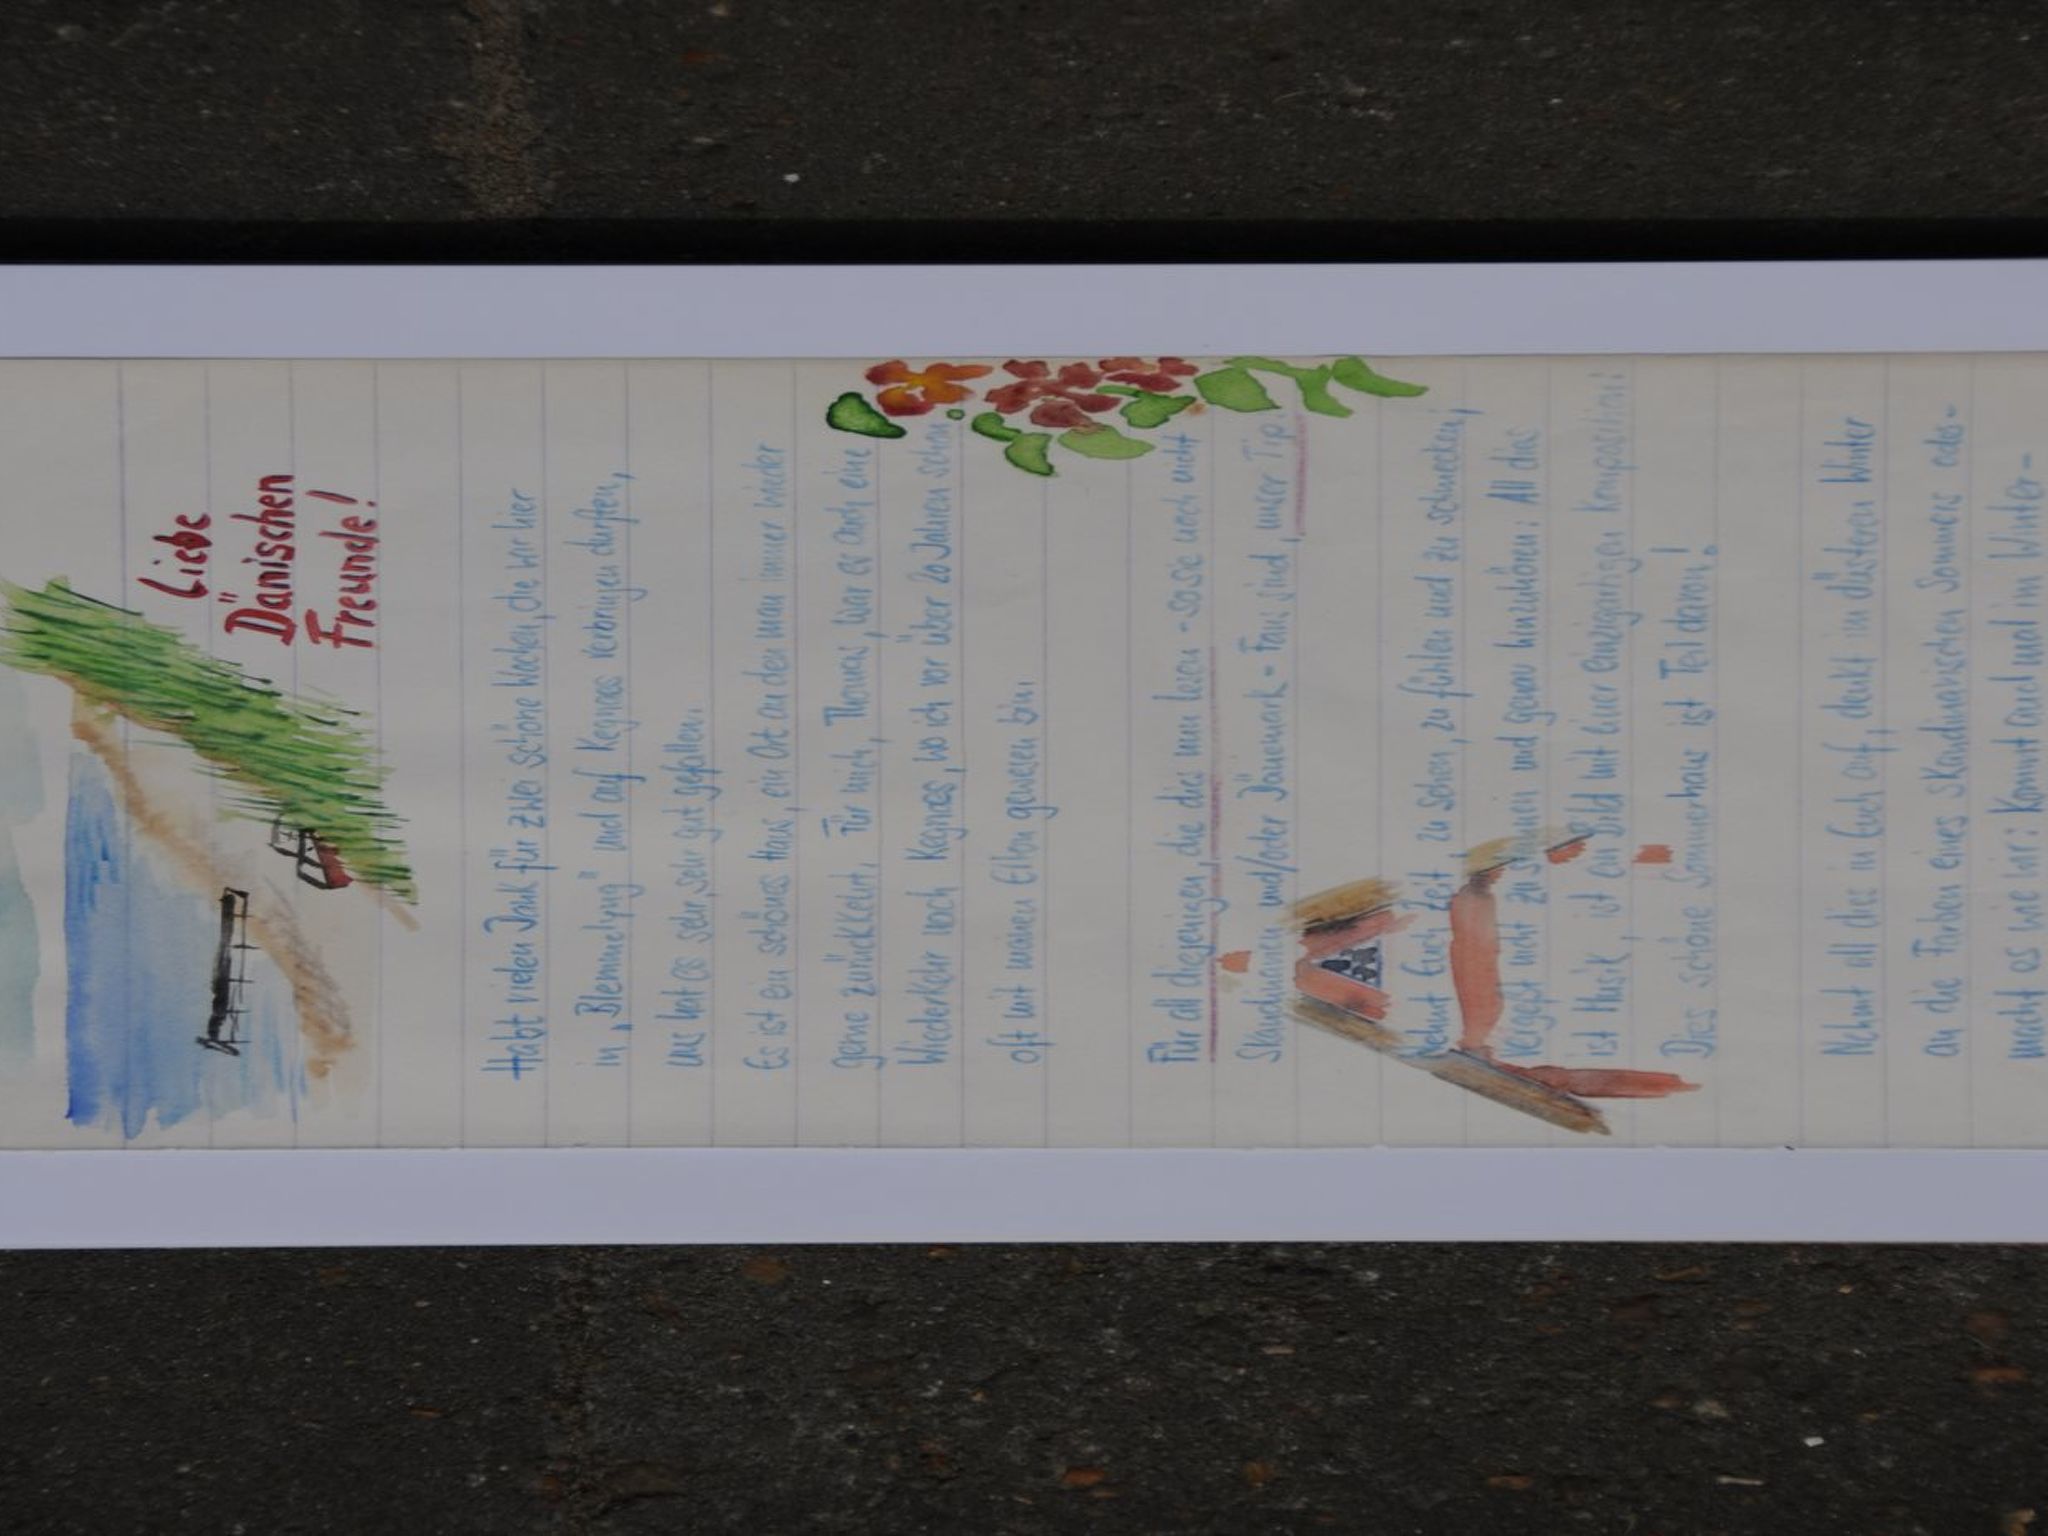 Liebe
Dänischen
Freunde!
Habt vielen Dank für zwei schöne Wochen, die wir hier
in „Blommelyng" und auf Kegnes verbringen durften,
uns hat es sehr, sehr gut gefallen.
Es ist ein schönes Haus, ein Ort an den man immer wieder
gerne zurückkehrt. Für mich, Thomas, war es auch eine
Wiederkehr nach Kegnes, wo ich vor über 20 Jahren schon
oft mit meinen Eltern gewesen bin.
Für all diejenigen, die dies nun lesen - so sie noch nicht
Skandinavien und/oder Dänemark - Fans sind, unser Tip:
Nehmt Euch Zeit, zu sehen, zu fühlen und zu schmecken,
vergeßt nicht zu und genau hinzuhören: All das
ist Musik, ist ein Bild mit einer einzigartigen Komposition!
Dies schöne Sommerhaus ist Teil davon!
Nehmt all dies in Euch auf, denkt im düsteren Winter
an die Farben eines skandinavischen Sommers oder
macht es wie wir: Kommt auch mal im Winter -